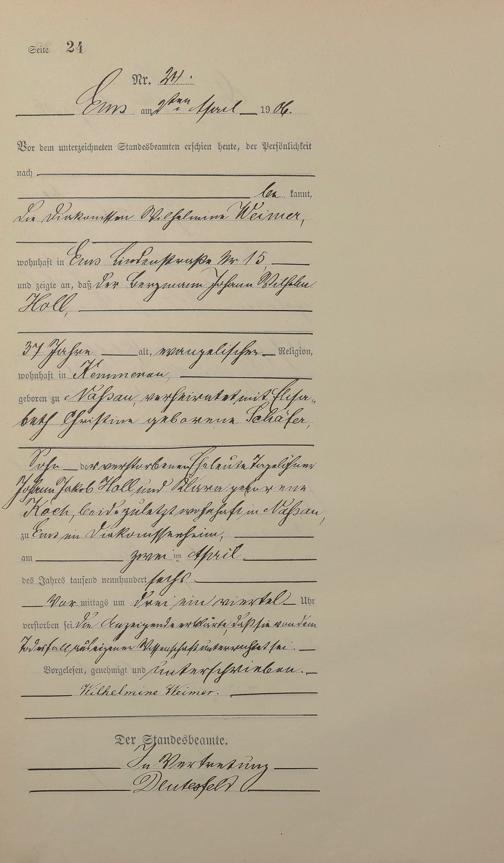 Seite 24
Nr. 24.
Ems am 2ten April 1906.
Vor dem unterzeichneten Standesbeamten erschien heute, der Persönlichkeit
nach
be kannt,
die Diakonissin Wilhelmine Weimer,
wohnhaft in Ems Lindenstraße Nr 15,
und zeigte an, daß der Bergmann Johann Wilhelm
Holl,
37 Jahre alt, evangelischer Religion,
wohnhaft in Kemmenau,
geboren zu Nassau, verheiratet mit Elisa-
beth Christine geborene Schäfer,
Sohn der verstorbenen Eheleute Tagelöhner
Johann Jakob Holl und Klara geborene
Koch, beide zuletzt wohnhaft in Nassau,
zu Ems im Diakonissenheim,
am zwei im April
des Jahres tausend neunhundert sechs
Vor mittags um drei ein viertel Uhr
verstorben sei. Die Anzeigende erklärte, daß sie von dem
Todesfall aus eigener Wissenschaft unterrichtet sei.
Vorgelesen, genehmigt und unterschrieben.
Wilhelmine Weimer.
Der Standesbeamte.
In Vertretung